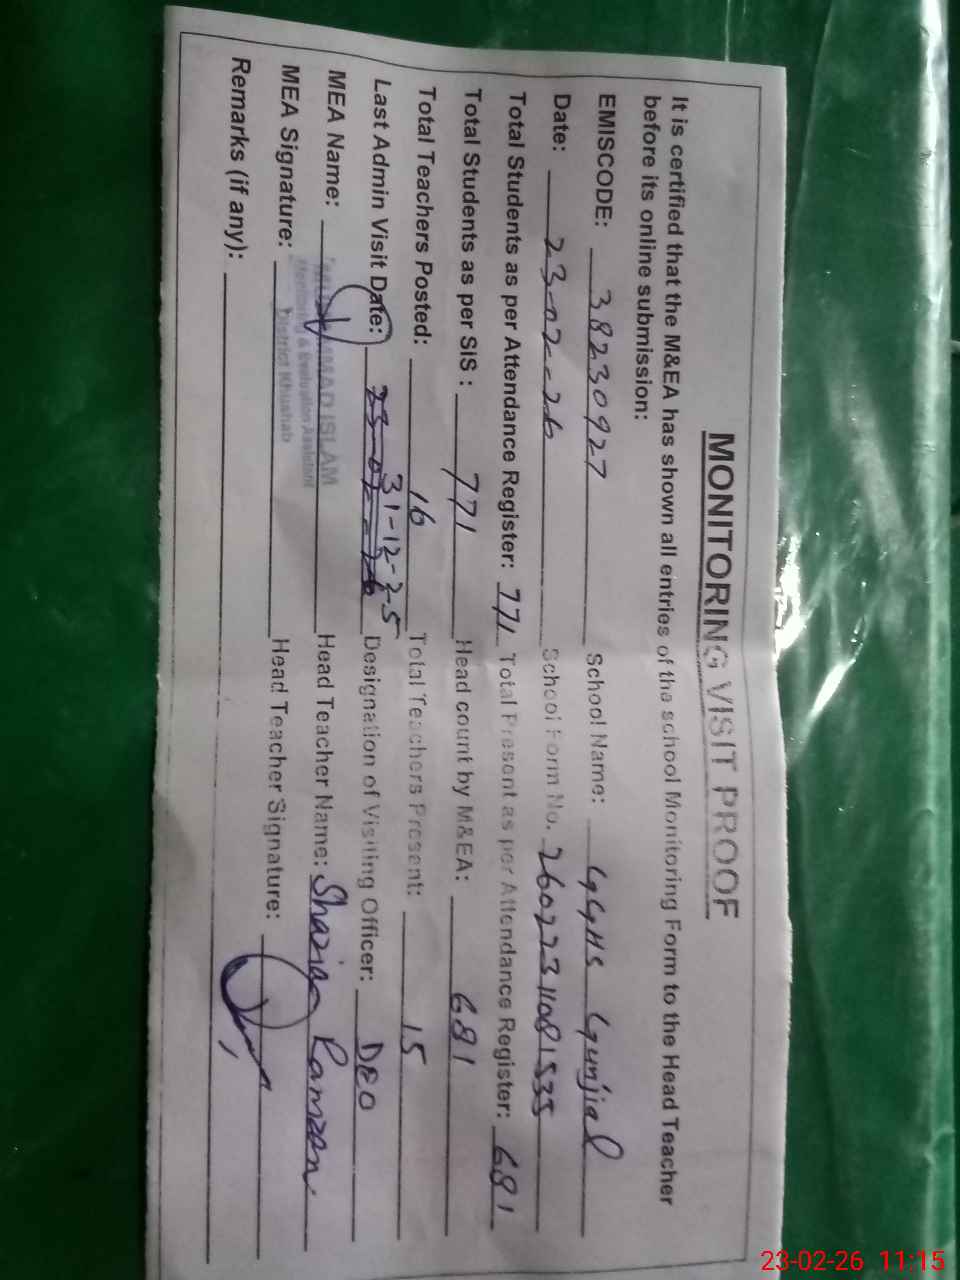 MONITORING VISIT PROOF
It is certified that the M&EA has shown all entries of the school Monitoring Form to the Head Teacher
before its online submission:
EMISCODE: 38230927 School Name: GGHS Gunjial
Date: 23-02-26 School Form No. 2602231081535
Total Students as per Attendance Register: 771 Total Present as per Attendance Register: 681
Total Students as per SIS : 771 Head count by M&EA: 681
Total Teachers Posted: 16 Total Teachers Present: 15
31-12-25
Last Admin Visit Date: 23-02-26 Designation of Visiting Officer: DEO
MEA Name: MUHAMMAD ISLAM Head Teacher Name: Shazia Ramzan
Monitoring & Evaluation Assistant
District Khushab
MEA Signature: Head Teacher Signature:
Remarks (if any):
23-02-26 11:15